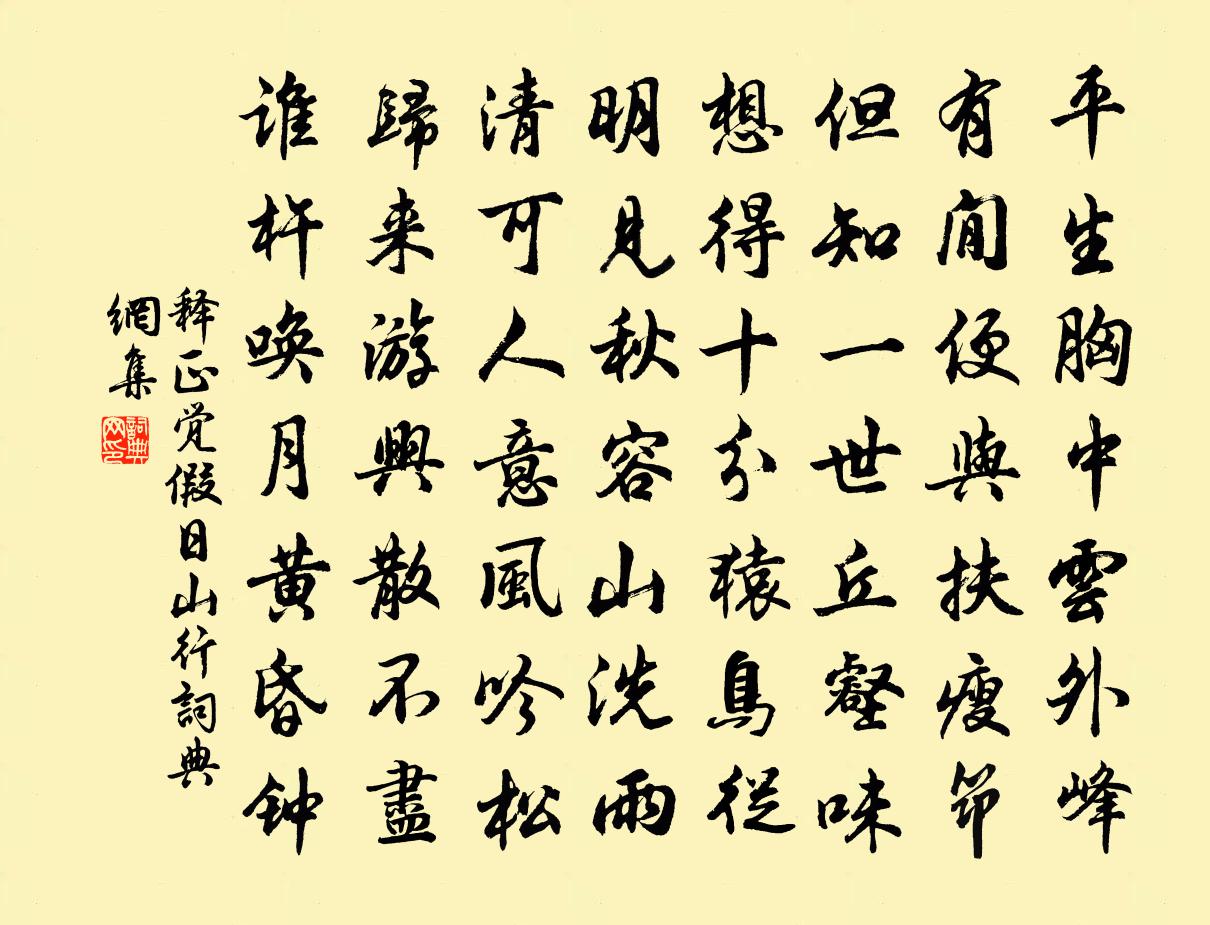 平生胸中雲外峰
有閒便與扶瘦筇
但知一世丘壑味
想得十分猿鳥從
明見秋容山洗雨
清可人意風吟松
歸来游興散不盡
谁杵唤月黄昏钟
释正觉假日山行詞典
網集
詞典
网印